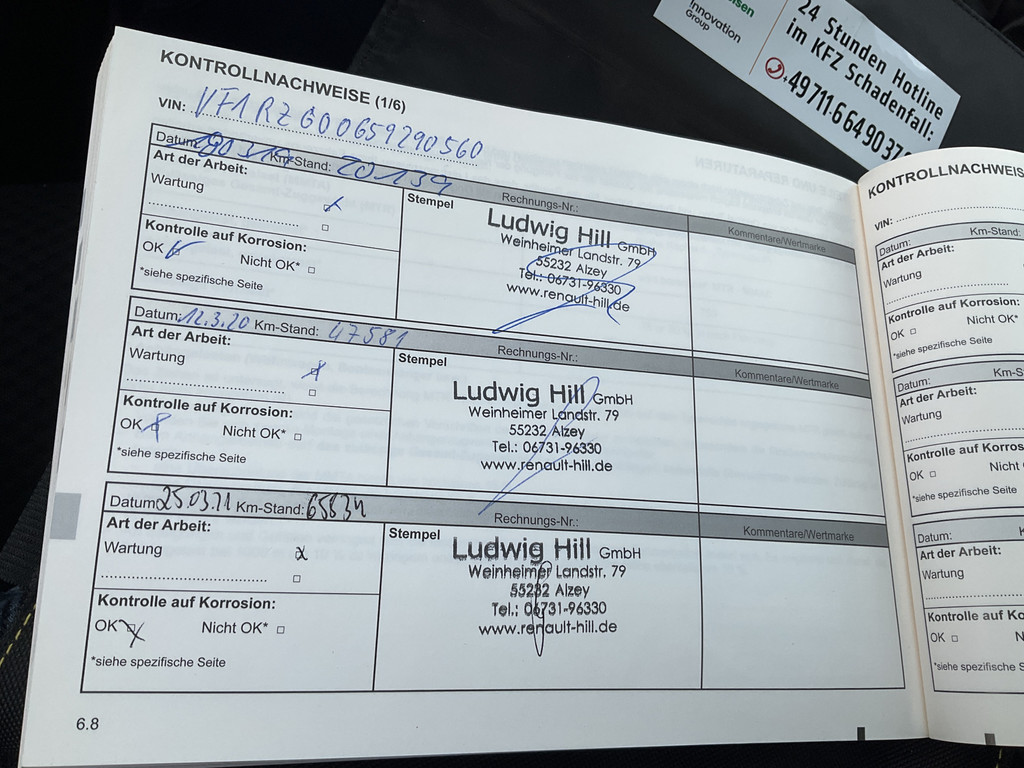 KONTROLLNACHWEISE (1/6)
VIN: VF1RZG00659290560
Datum: Km-Stand: 20139
Art der Arbeit:
Wartung
Kontrolle auf Korrosion:
OK Nicht OK*
*siehe spezifische Seite
Stempel
Rechnungs-Nr.:
Ludwig Hill GmbH
Weinheimer Landstr. 79
55232 Alzey
Tel.: 06731-96330
www.renault-hill.de
Kommentare/Wertmarke
Datum: 12.3.20 Km-Stand: 47581
Art der Arbeit:
Wartung
Kontrolle auf Korrosion:
OK Nicht OK*
*siehe spezifische Seite
Stempel
Rechnungs-Nr.:
Ludwig Hill GmbH
Weinheimer Landstr. 79
55232 Alzey
Tel.: 06731-96330
www.renault-hill.de
Kommentare/Wertmarke
Datum 25.03.21 Km-Stand: 65834
Art der Arbeit:
Wartung
Kontrolle auf Korrosion:
OK Nicht OK*
*siehe spezifische Seite
Stempel
Rechnungs-Nr.:
Ludwig Hill GmbH
Weinheimer Landstr. 79
55232 Alzey
Tel.: 06731-96330
www.renault-hill.de
Kommentare/Wertmarke
6.8
Innovation
Group
24 Stunden Hotline
im KFZ Schadenfall:
KONTROLLNACHWEIS
VIN:
Datum: Km-Stand:
Art der Arbeit:
Wartung
Kontrolle auf Korrosion:
OK Nicht OK*
*siehe spezifische Seite
Datum:
Art der Arbeit:
Wartung
OK
*siehe spezifische
Datum:
Art der Arbeit:
Wartung
OK
*siehe spezifische